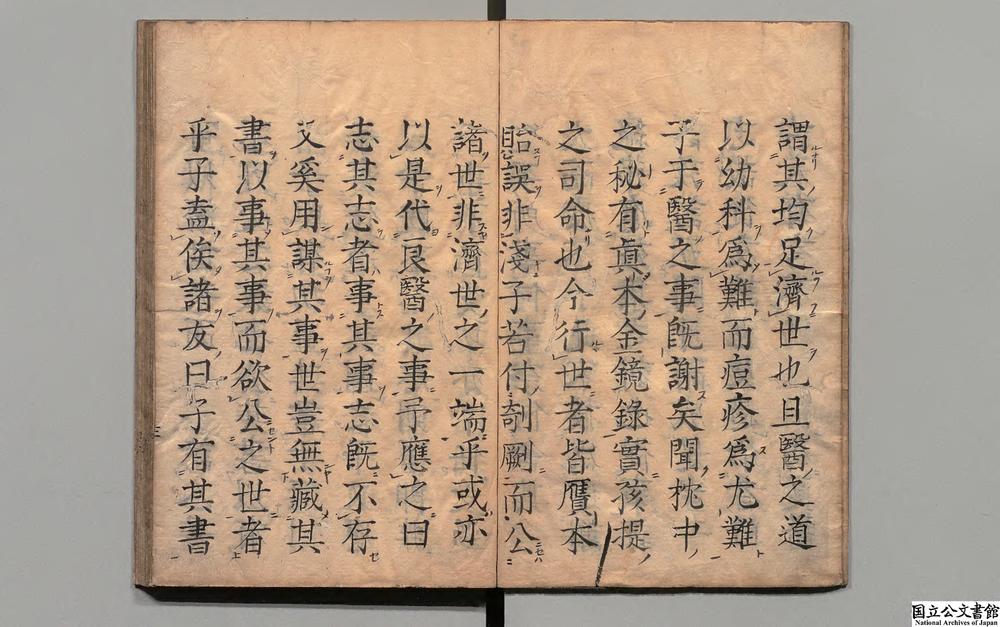 謂其均足濟世也且醫之道
以幼科爲難而痘疹爲尤難
予于醫之事旣謝矣聞枕中
之秘有眞本金鏡錄實孩提
之司命也今行世者皆贋本
貽誤非淺子若付剞劂而公
諸世非濟世之一端乎或亦
以是代良醫之事予應之曰
志其志者事其事志旣不存
又奚用謀其事世豈無藏其
書以事其事而欲公之世者
乎子盍俟諸友曰子有其書
国立公文書館
National Archives of Japan